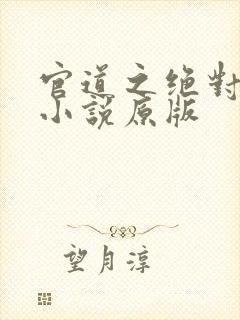 官道之绝對
小說原版
望月淳